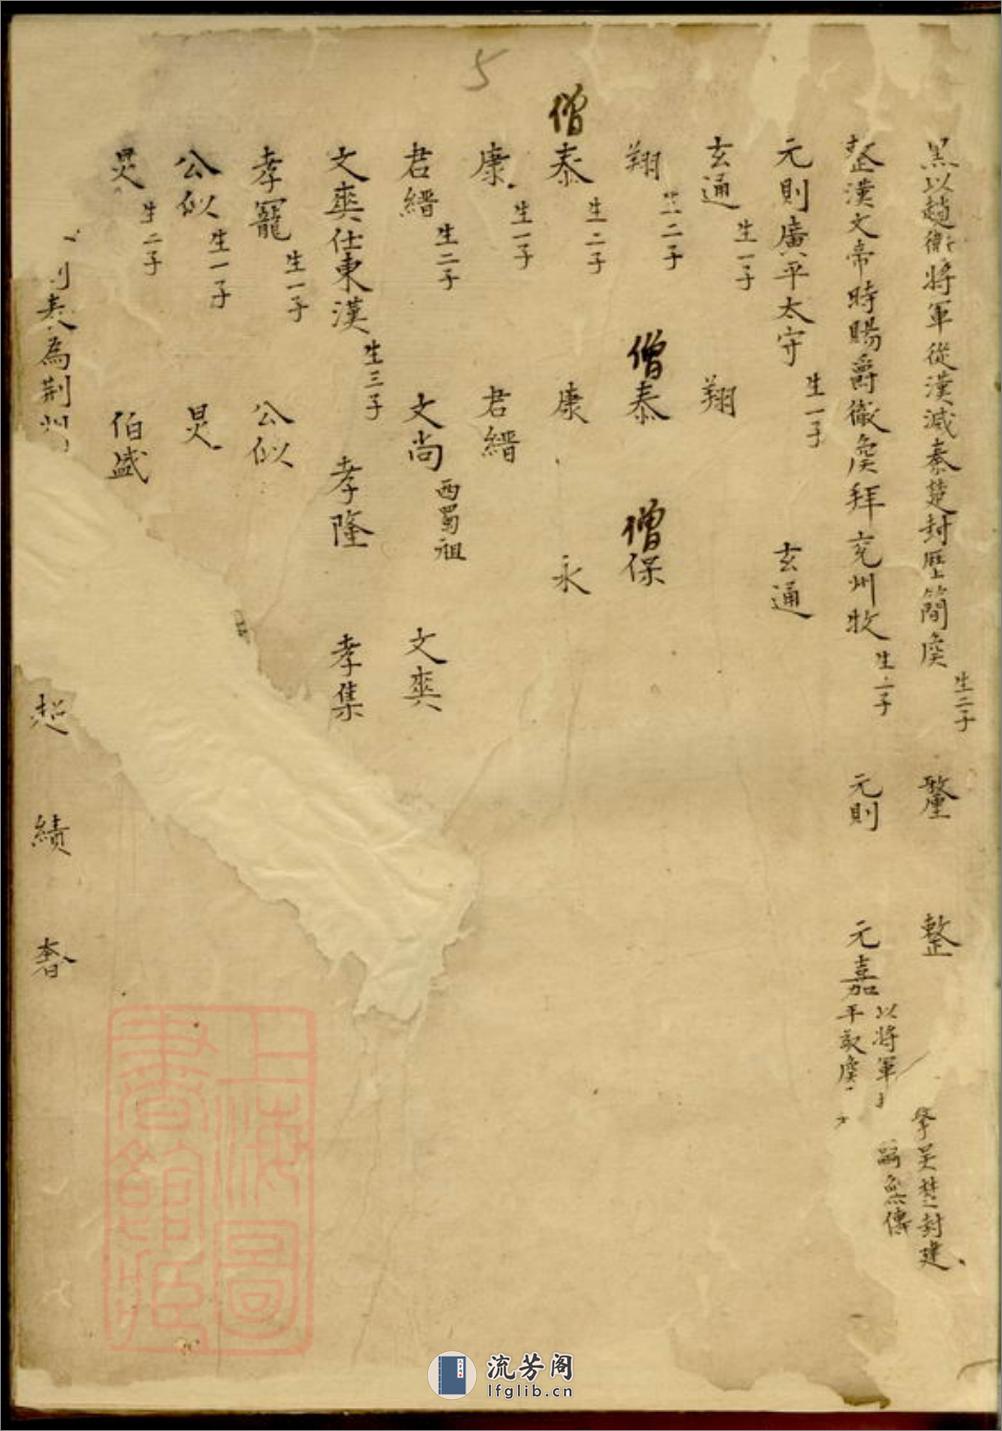 5
黑以趙衛將軍從漢滅秦楚封歷簡矦 生二子 釐 整
整漢文帝時賜爵徹矦拜兖州牧 生二子 元則 元嘉 以將軍
擊吴楚封建
平敬矦
嗣無傳
元則廣平太守 生一子 玄通
玄通 生一子 翔
翔 生二子 僧泰 僧保
僧泰 生二子 康 永
康 生一子 君縉
君縉 生二子 文尚 西蜀祖 文奭
文奭仕東漢 生三子 孝隆 孝集
孝寵 生一子 公似
公似 生一子 炅
炅 生二子 伯盛
表為荆州 超 績 奢
上海圖書館藏
流芳阁
lfglib.cn